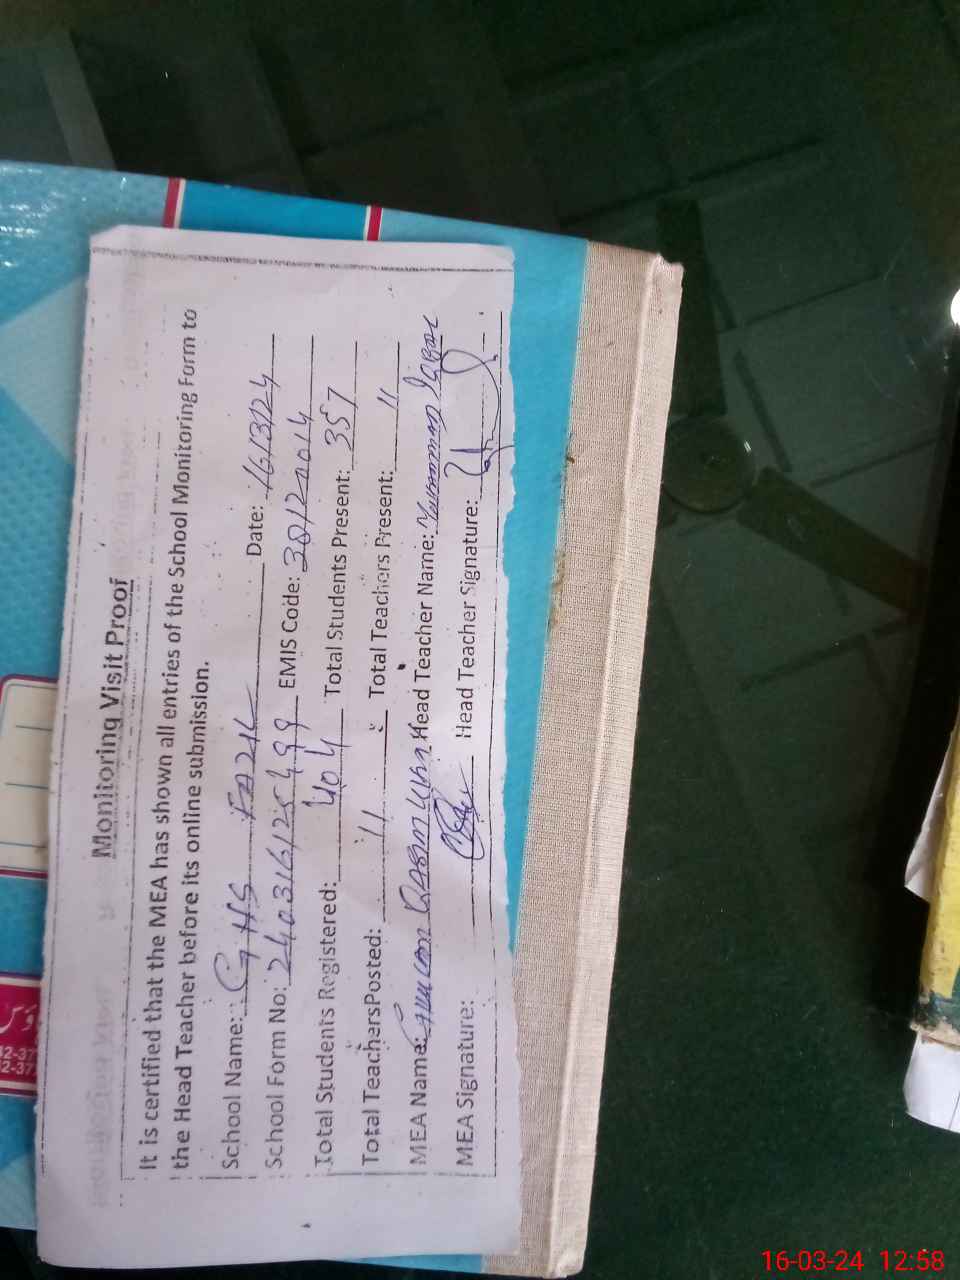 Monitoring Visit Proof
It is certified that the MEA has shown all entries of the School Monitoring Form to
the Head Teacher before its online submission.
School Name: GHS Date: 16/3/24
School Form No: EMIS Code: 38120014
Total Students Registered: 404 Total Students Present: 357
Total TeachersPosted: 11 Total Teachers Present: 11
MEA Name: Head Teacher Name:
MEA Signature: Head Teacher Signature:
16-03-24 12:58